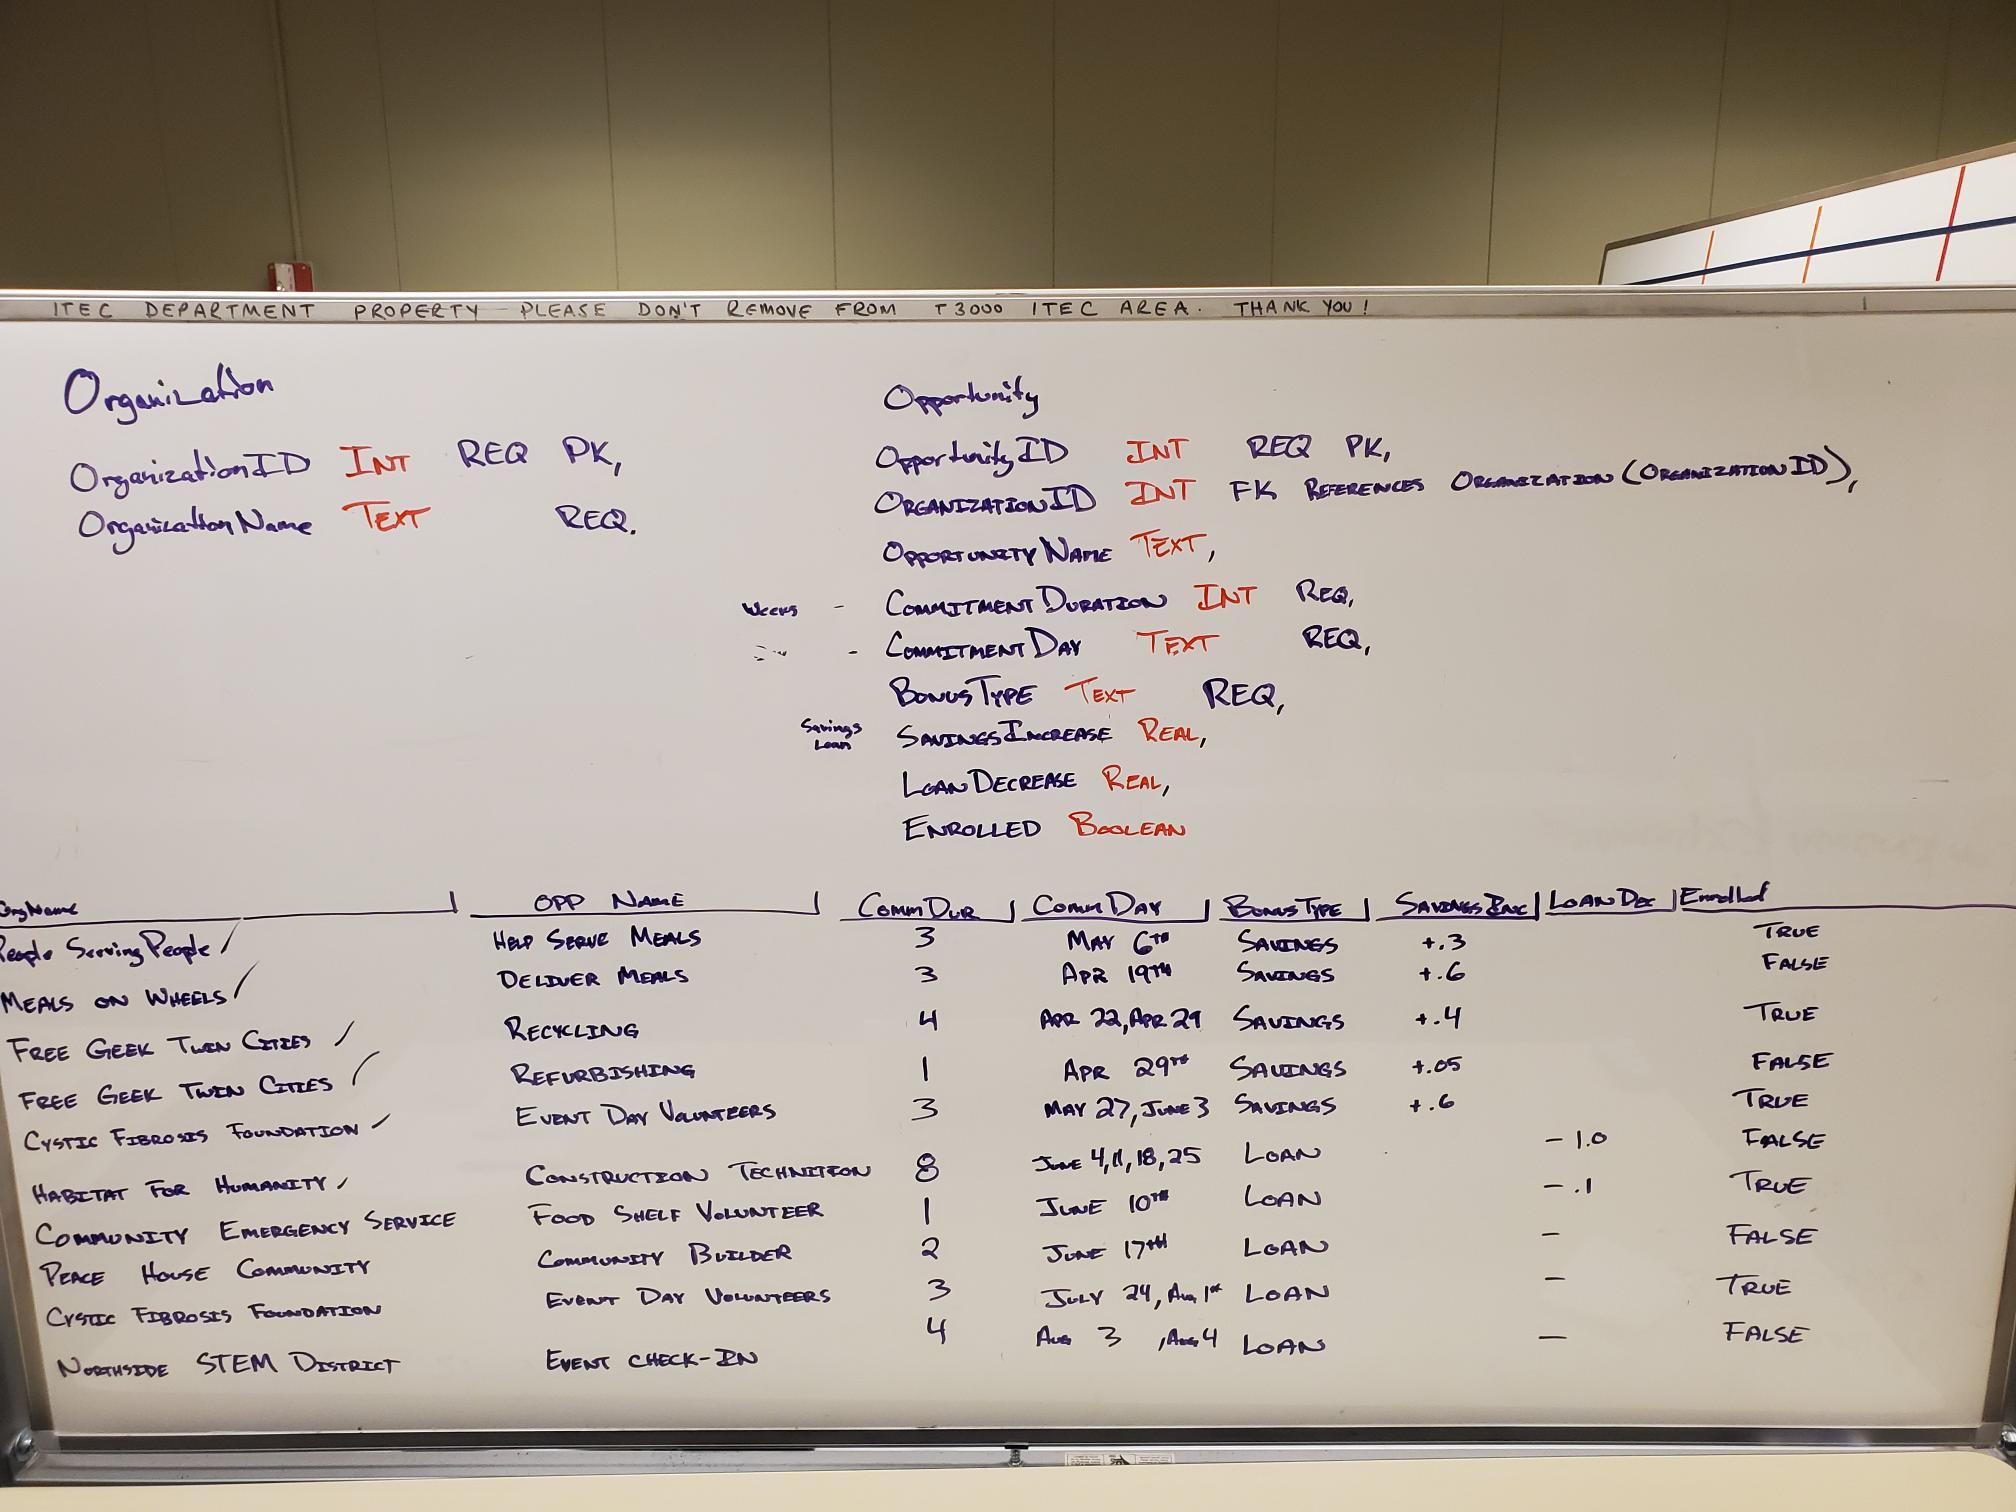 ITEC DEPARTMENT PROPERTY - PLEASE DON'T REMOVE FROM T3000 ITEC AREA. THANK YOU!
Organization
OrganizationID INT REQ PK,
OrganizationName TEXT REQ.
Opportunity
OpportunityID INT REQ PK,
ORGANIZATIONID INT FK REFERENCES ORGANIZATION (ORGANIZATIONID),
OPPORTUNITYNAME TEXT,
WEEKS - COMMITMENTDURATION INT REQ,
- COMMITMENTDAY TEXT REQ,
BONUSTYPE TEXT REQ,
Savings
Loan
SAVINGSINCREASE REAL,
LOANDECREASE REAL,
ENROLLED BOOLEAN
OrgName OPP NAME COMMDUR COMMDAY BONUSTYPE SAVINGSINC LOANDEC Enrolled
People Serving People HELP SERVE MEALS 3 MAY 6TH SAVINGS +.3 TRUE
MEALS ON WHEELS DELIVER MEALS 3 APR 19TH SAVINGS +.6 FALSE
FREE GEEK TWIN CITIES RECYCLING 4 APR 22, APR 29 SAVINGS +.4 TRUE
FREE GEEK TWIN CITIES REFURBISHING 1 APR 29TH SAVINGS +.05 FALSE
CYSTIC FIBROSIS FOUNDATION EVENT DAY VOLUNTEERS 3 MAY 27, JUNE 3 SAVINGS +.6 TRUE
HABITAT FOR HUMANITY CONSTRUCTION TECHNITION 8 JUNE 4,11,18,25 LOAN -1.0 FALSE
COMMUNITY EMERGENCY SERVICE FOOD SHELF VOLUNTEER 1 JUNE 10TH LOAN -.1 TRUE
PEACE HOUSE COMMUNITY COMMUNITY BUILDER 2 JUNE 17TH LOAN - FALSE
CYSTIC FIBROSIS FOUNDATION EVENT DAY VOLUNTEERS 3 JULY 24, Aug 1st LOAN - TRUE
NORTHSIDE STEM DISTRICT EVENT CHECK-IN 4 AUG 3, AUG 4 LOAN - FALSE